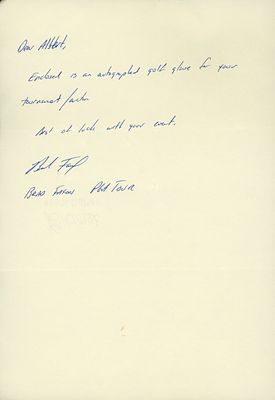 Dear Albert,
Enclosed is an autographed golf glove for your
tournament/auction.
Best of luck with your event.
Brad Faxon
BRAD FAXON PGA TOUR